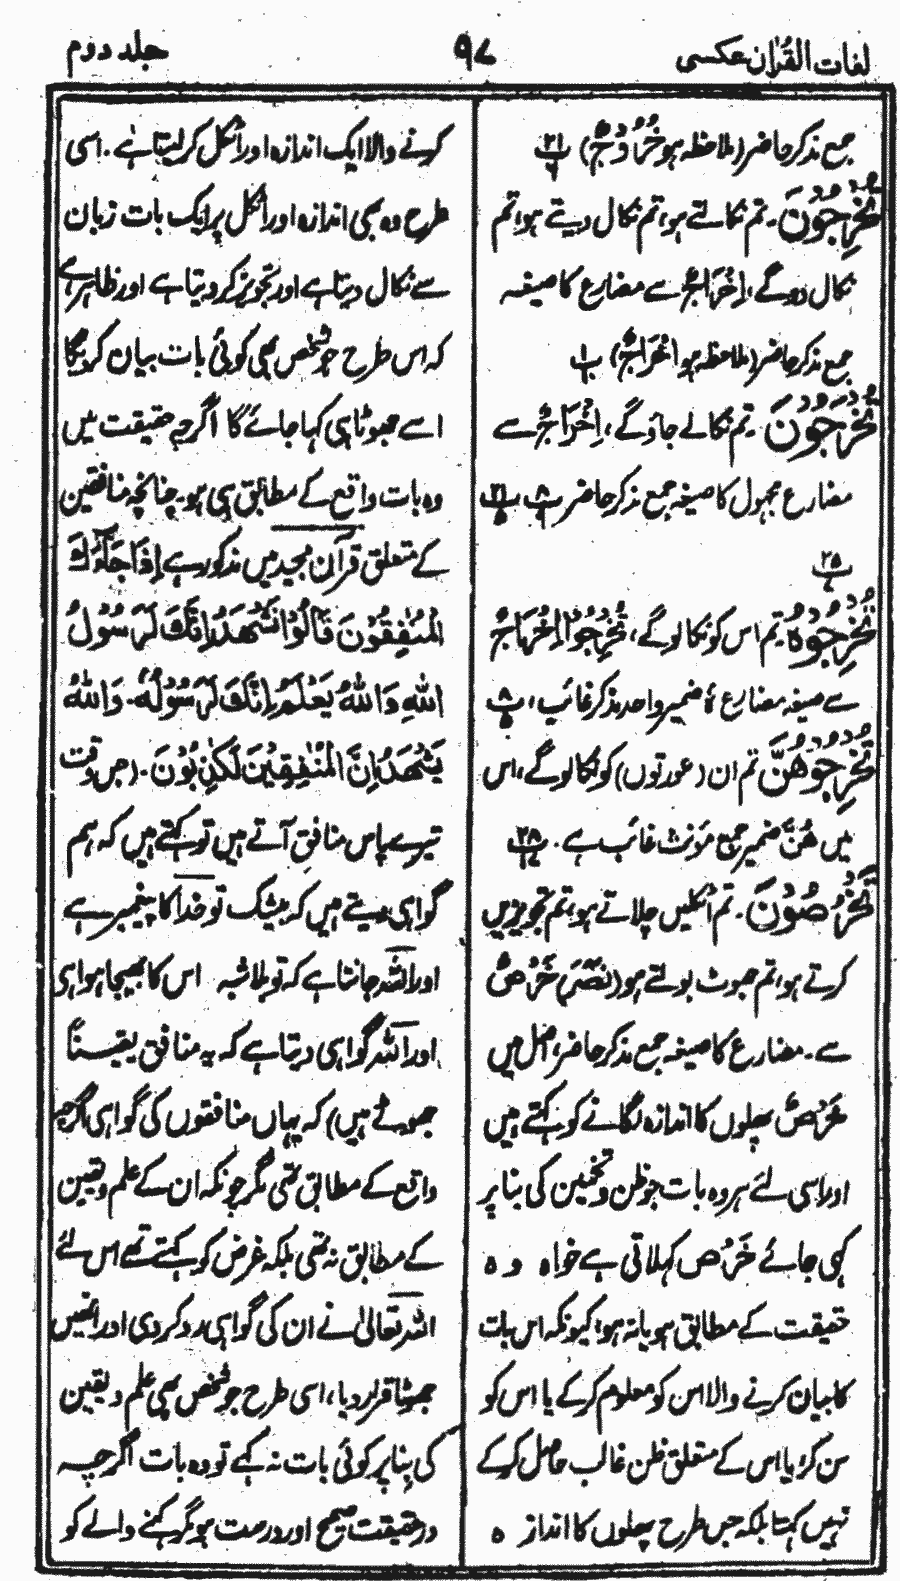 لغات القرآن عکسی
۹۷
جلد دوم
جمع مذکر حاضر (ملاحظہ ہو خُرُوْجٌ)
تُخْرِجُوْنَ۔ تم نکالتے ہو، تم نکال دیتے ہو، تم
نکال دوگے، اِخْرَاجٌ سے مضارع کا صیغہ
جمع مذکر حاضر (ملاحظہ ہو اخراجٌ)
تُخْرَجُوْنَ۔ تم نکالے جاؤگے، اِخْرَاجٌ سے
مضارع مجہول کا صیغہ جمع مذکر حاضر
۲۵
تُخْرِجُوْهُ تم اس کو نکالوگے، تُخْرِجُوْا اِخْرَاجٌ
سے صیغہ مضارع ہٗ ضمیر واحد مذکر غائب،
تُخْرِجُوْهُنَّ تم ان (عورتوں) کو نکالوگے، اس
میں ھُنَّ ضمیر جمع مؤنث غائب ہے۔ ۲۸
تَخْرُصُوْنَ۔ تم اٹکلیں چلاتے ہو، تم تجویزیں
کرتے ہو، تم جھوٹ بولتے ہو (نَصَرَ) خَرْصٌ
سے۔ مضارع کا صیغہ جمع مذکر حاضر، اصل میں
خَرْصٌ پھلوں کا اندازہ لگانے کو کہتے ہیں
اور اسی لئے ہر وہ بات جو ظن و تخمین کی بنا پر
کہی جائے خَرْص کہلاتی ہے خواہ وہ
حقیقت کے مطابق ہو یا نہ ہو، کیونکہ اس بات
کا بیان کرنے والا اس کو معلوم کرکے یا اس کو
سن کر، یا اس کے متعلق ظن غالب حاصل کرکے
نہیں کہتا بلکہ جس طرح پھلوں کا انداز ہ
کرنے والا ایک اندازہ اور اٹکل کر لیتا ہے۔ اسی
طرح وہ بھی اندازہ اور اٹکل پر ایک بات زبان
سے نکال دیتا ہے اور تجویز کر دیتا ہے اور ظاہر ہے
کہ اس طرح جو شخص بھی کوئی بات بیان کریگا
اسے جھوٹا ہی کہا جائے گا اگرچہ حقیقت میں
وہ بات واقع کے مطابق ہی ہو۔ چنانچہ منافقین
کے متعلق قرآن مجید میں مذکور ہے اِذَا جَآءَكَ
الْمُنٰفِقُوْنَ قَالُوْا نَشْهَدُ اِنَّكَ لَرَسُوْلُ
اللهِ وَاللهُ يَعْلَمُ اِنَّكَ لَرَسُوْلُهٗ۔ وَاللهُ
يَشْهَدُ اِنَّ الْمُنٰفِقِيْنَ لَكٰذِبُوْنَ۔ (جس وقت
تیرے پاس منافق آتے ہیں تو کہتے ہیں کہ ہم
گواہی دیتے ہیں کہ بیشک تو خدا کا پیغمبر ہے
اور اللہ جانتا ہے کہ تو بلاشبہ اس کا بھیجا ہوا ہی
اور اللہ گواہی دیتا ہے کہ یہ منافق یقیناً
جھوٹے ہیں) کہ یہاں منافقوں کی گواہی اگرچہ
واقع کے مطابق تھی مگر چونکہ ان کے علم و یقین
کے مطابق نہ تھی بلکہ غرض کو کہتے تھے اس لئے
اللہ تعالیٰ نے ان کی گواہی رد کردی اور انھیں
جھوٹا قرار دیا، اسی طرح جو شخص بھی علم و یقین
کی بنا پر کوئی بات نہ کہے تو وہ بات اگرچہ
درحقیقت صحیح اور درست ہو مگر کہنے والے کو